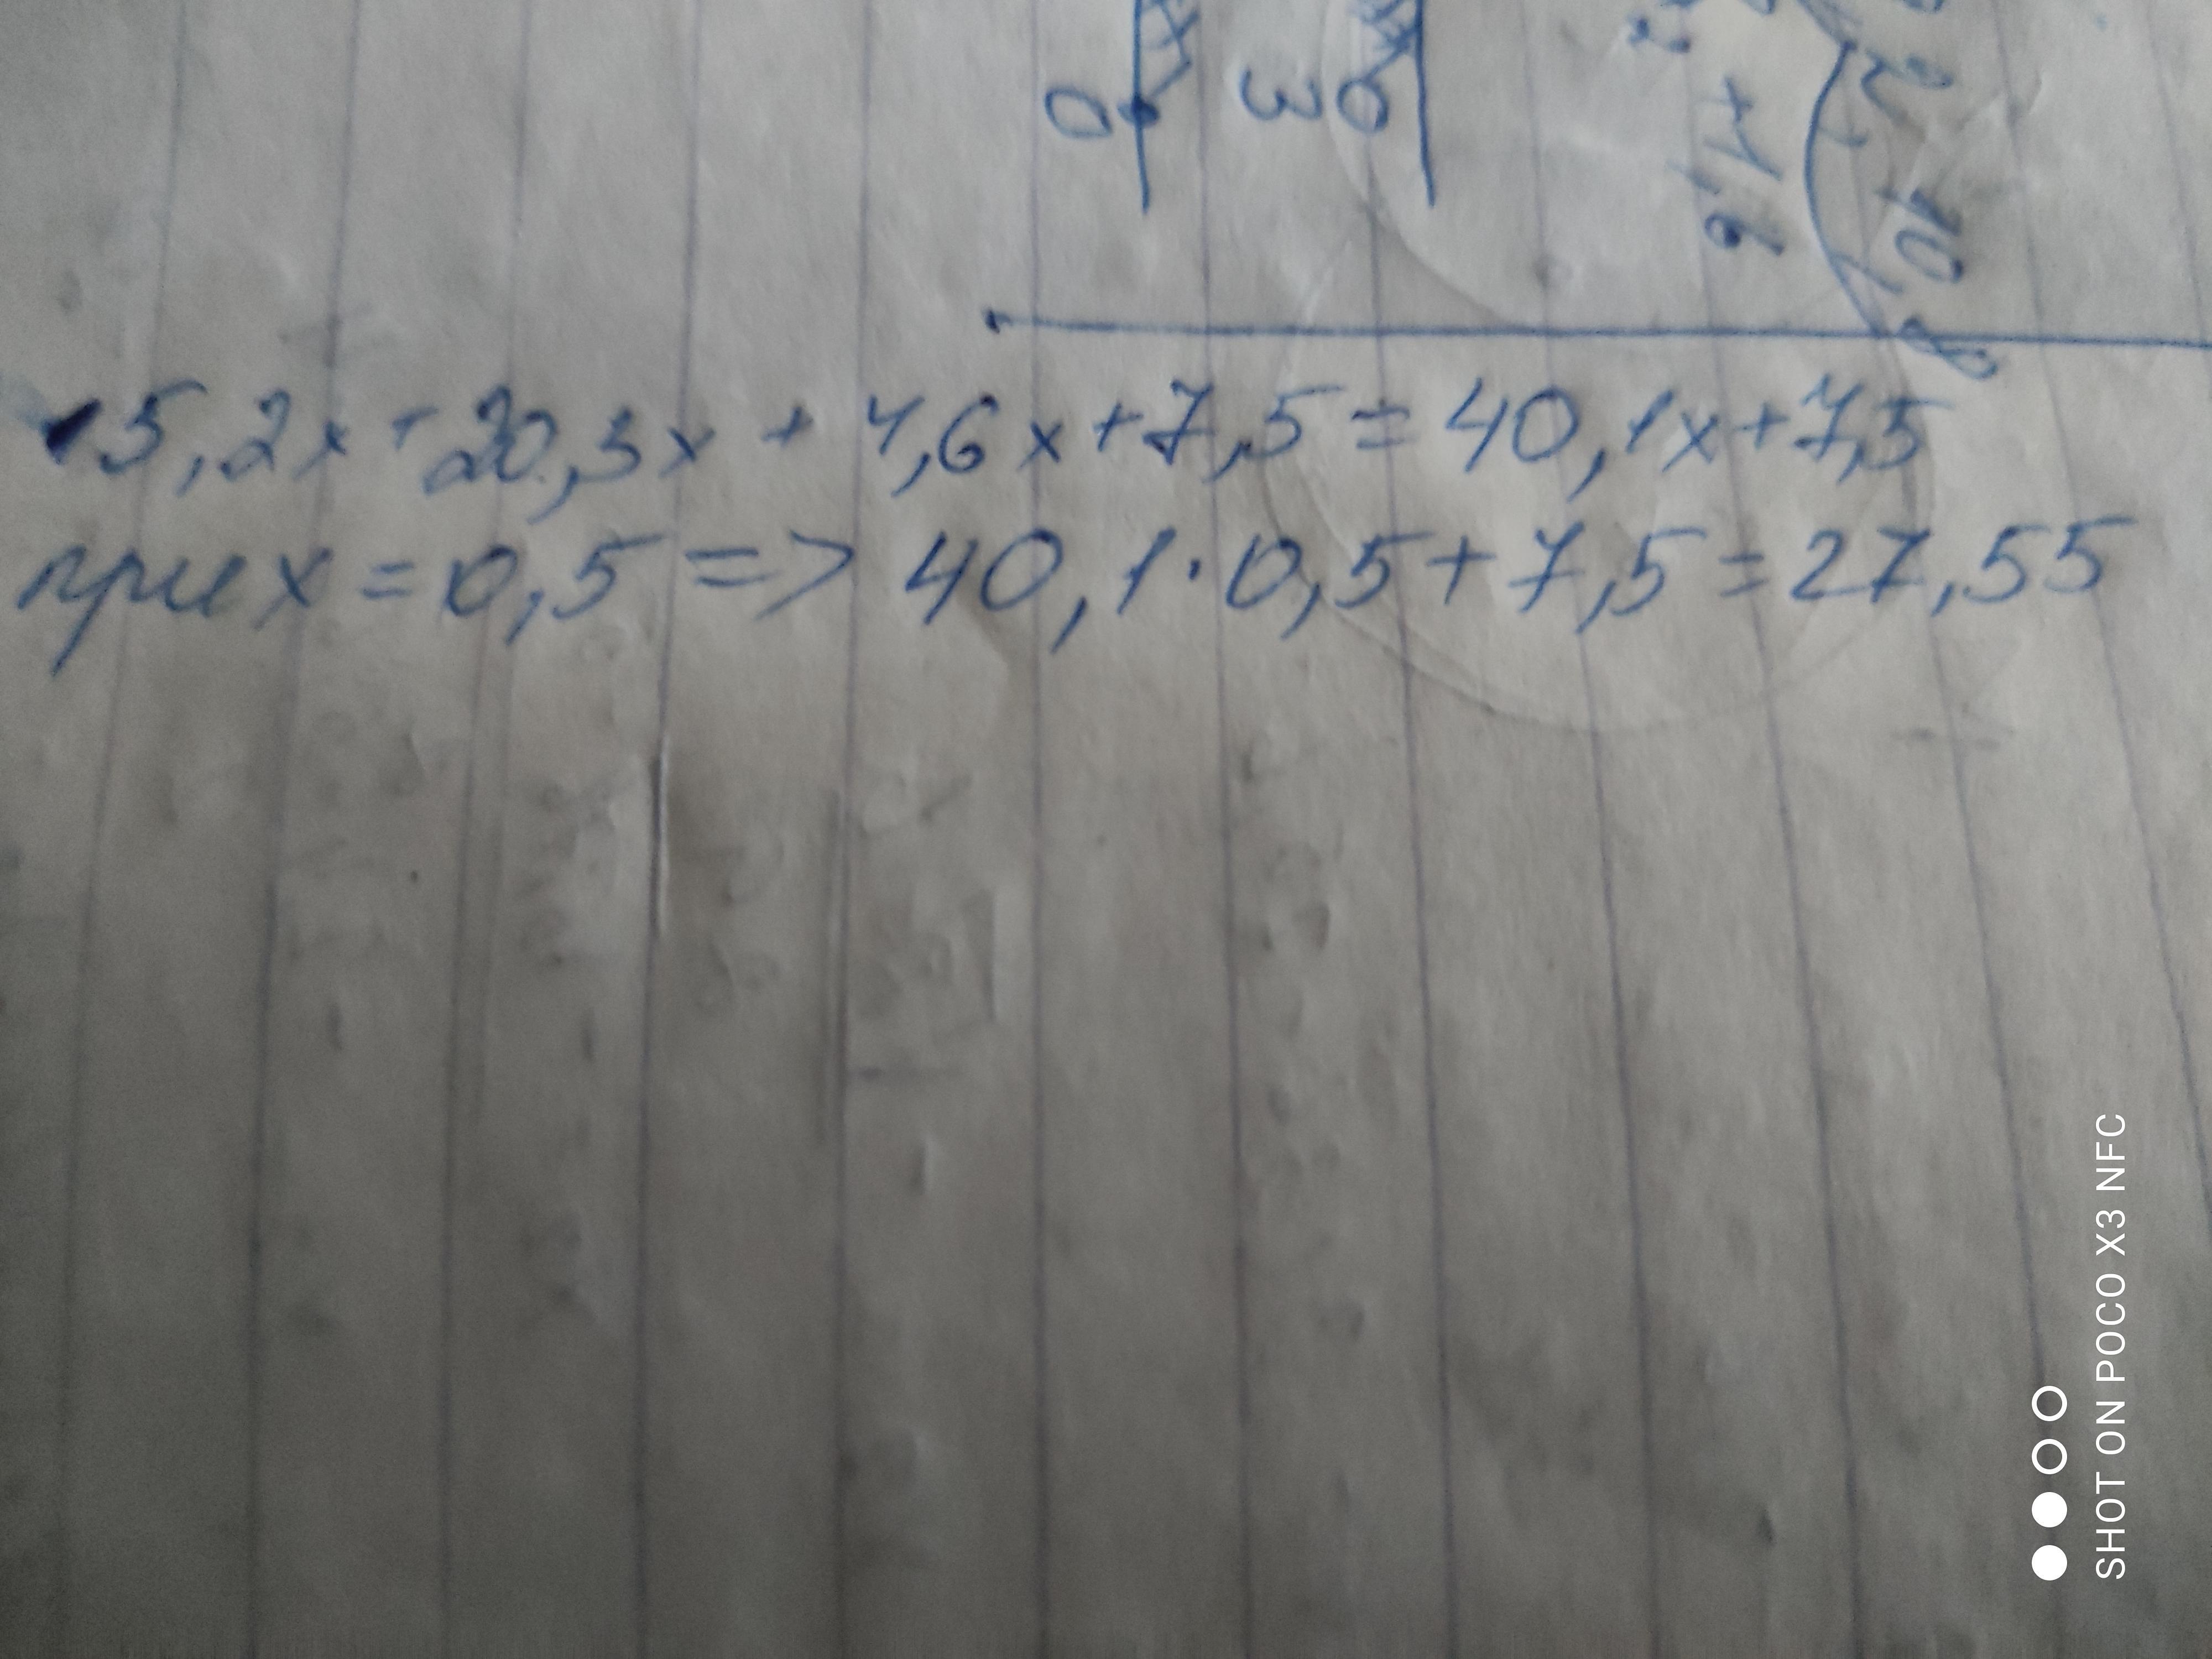 0 30 +1,6 2, 10,8
15,2x + 20,3x + 4,6x + 7,5 = 40,1x + 7,5
при x = 0,5 => 40,1 · 0,5 + 7,5 = 27,55
SHOT ON POCO X3 NFC